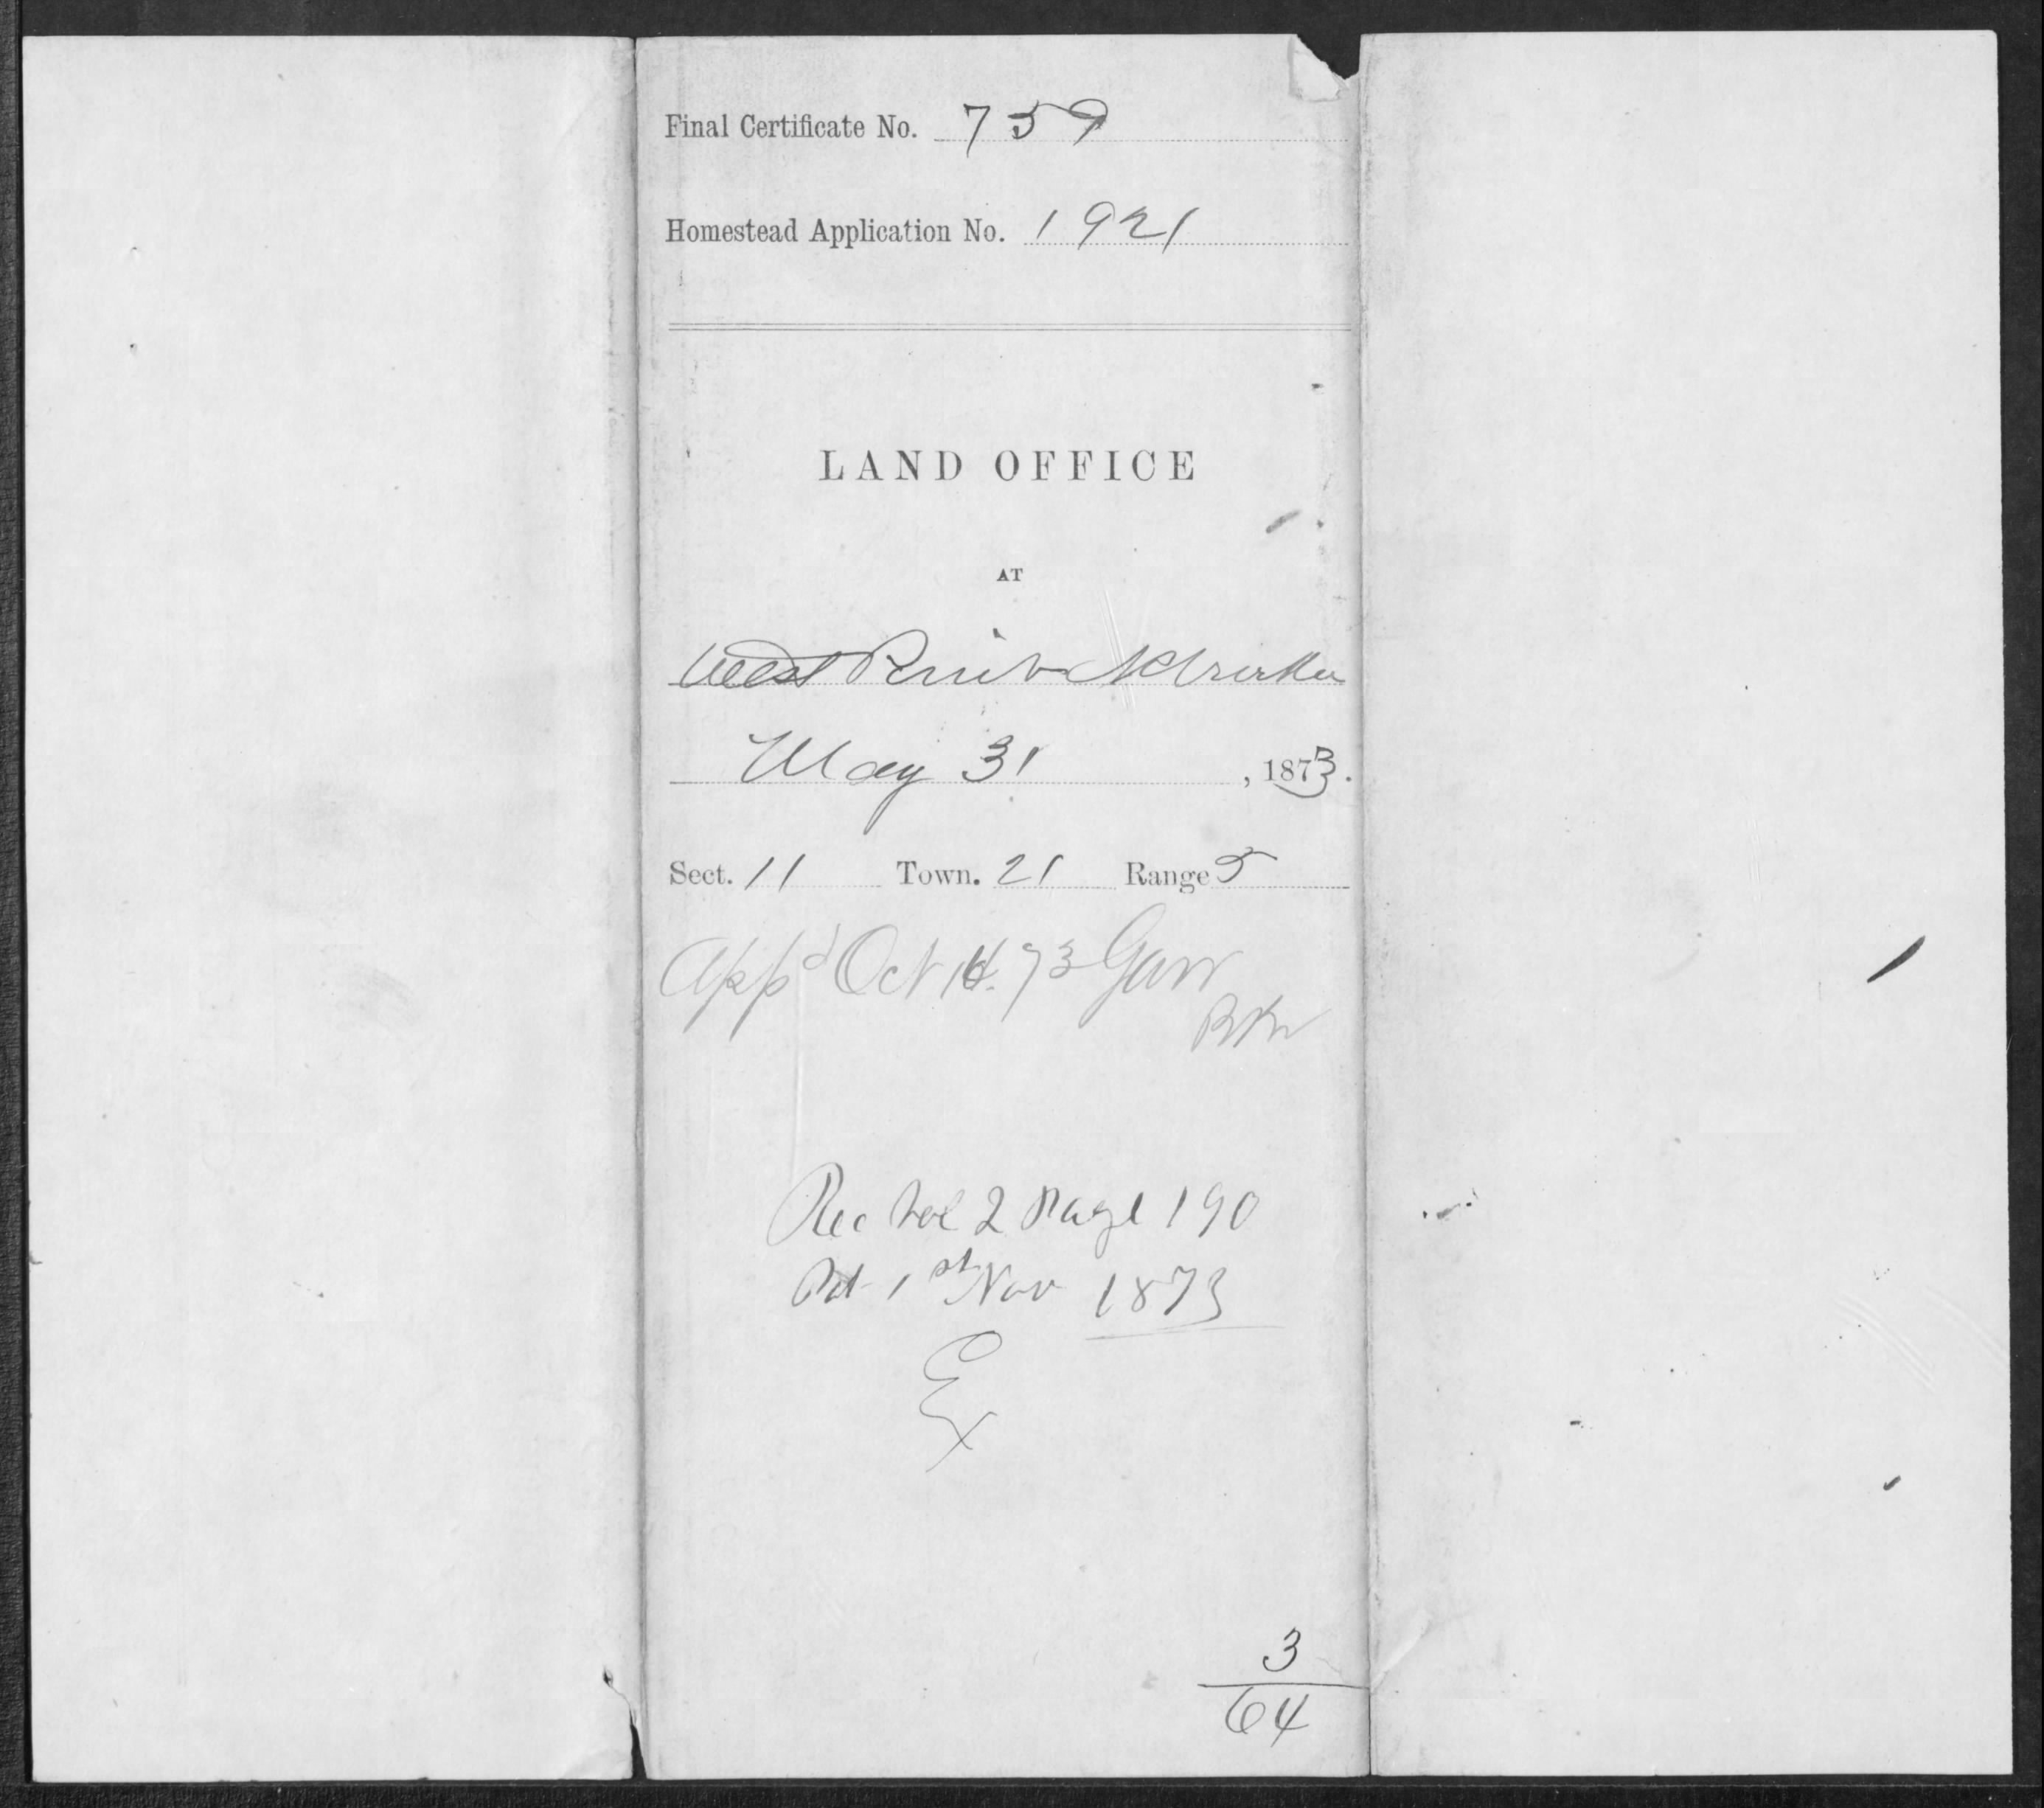 Final Certificate No. 759
Homestead Application No. 1921
LAND OFFICE
AT
West Point Nebraska
May 31, 1873.
Sect. 11 Town. 21 Range 5
Appd Oct 14. 73
Rec Vol 2 Page 190
Pat 1st Nov 1873
Ex
3
64